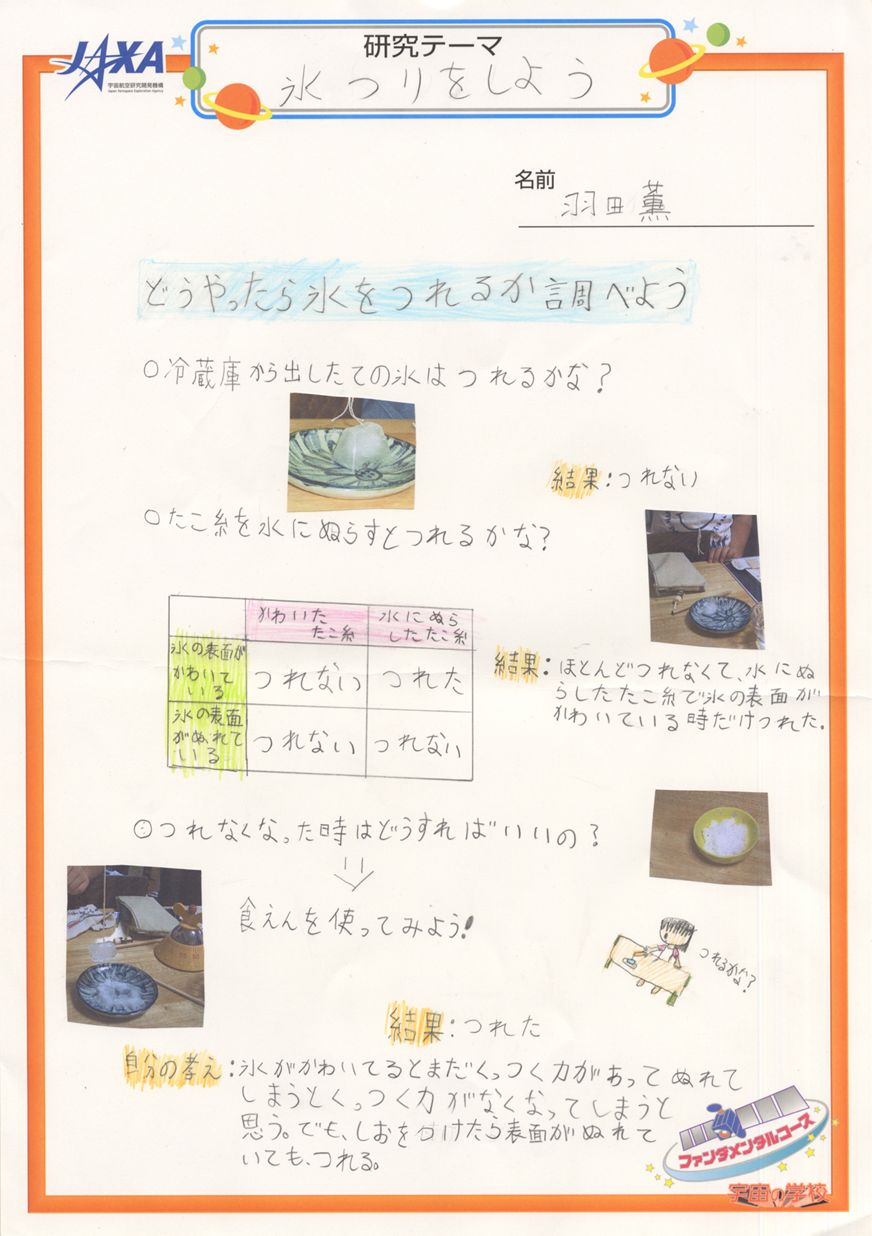 JAXA
宇宙航空研究開発機構
Japan Aerospace Exploration Agency
研究テーマ
氷つりをしよう
名前
羽田薫
どうやったら氷をつれるか調べよう
○冷蔵庫から出したての氷はつれるかな?
結果:つれない
○たこ糸を水にぬらすとつれるかな?
かわいた
たこ糸
水にぬら
したたこ糸
氷の表面が
かわいて
いる
つれない
つれた
氷の表面
がぬれて
いる
つれない
つれない
結果:ほとんどつれなくて、水にぬ
らしたたこ糸で氷の表面が
かわいている時だけつれた.
○つれなくなった時はどうすればいいの?
食えんを使ってみよう!
つれるかな?
結果:つれた
自分の考え:氷がかわいてるとまだくっつく力があってぬれて
しまうとくっつく力がなくなってしまうと
思う。でも、しおをつけたら表面がぬれて
いても、つれる。
ファンダメンタルコース
宇宙の学校